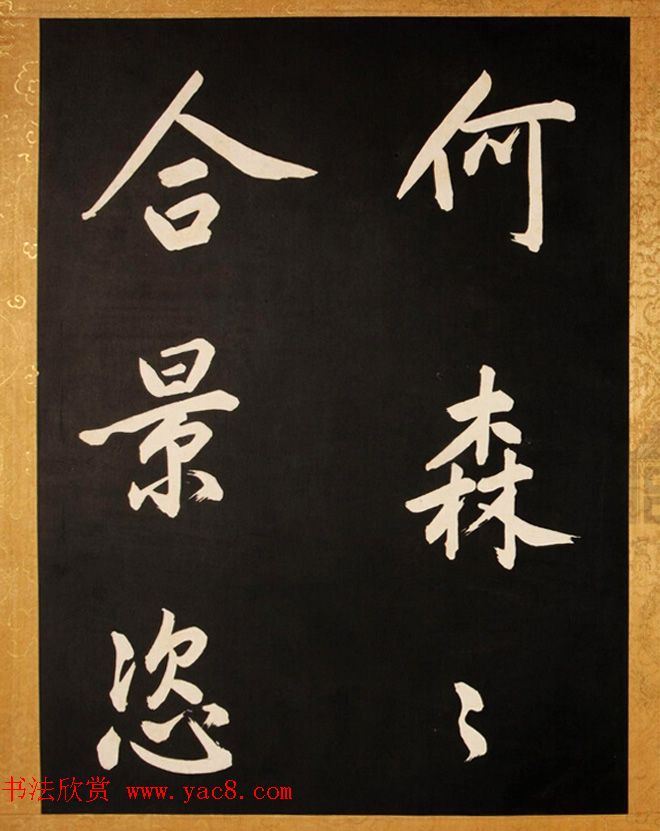 何森〻
合景恣
书法欣赏 www.yac8.com